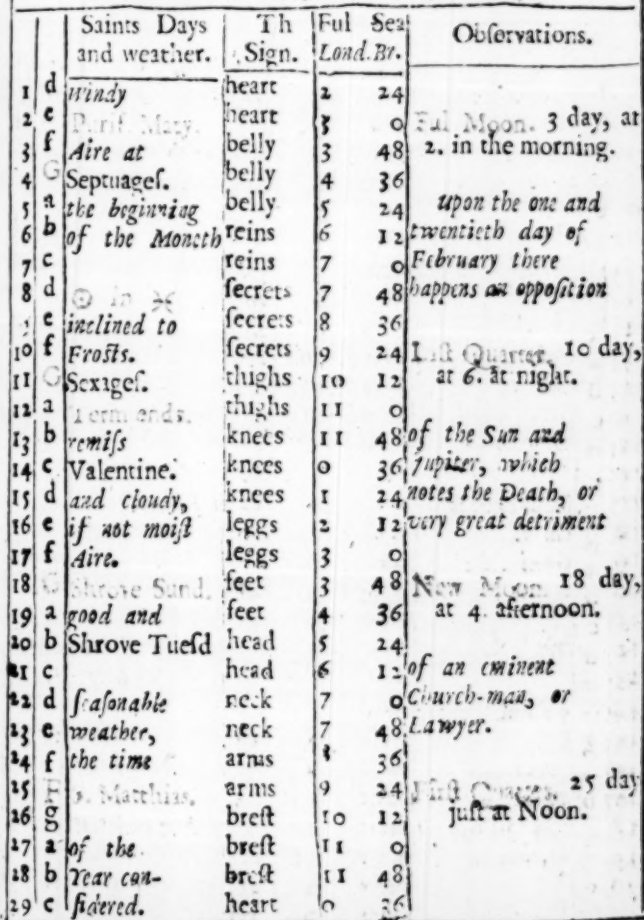 Saints Days and weather. | Th Sign. | Ful Sea Lond. Br. | Obſervations.
1 d windy heart 2 24
2 e Purif. Mary. heart 3 0 Ful Moon. 3 day, at
3 f Aire at belly 3 48 2. in the morning.
4 G Septuageſ. belly 4 36
5 a the beginning belly 5 24 upon the one and
6 b of the Moneth reins 6 12 twentieth day of
7 c reins 7 0 February there
8 d ☉ in ♓ ſecrets 7 48 happens an oppoſition
e inclined to ſecrets 8 36
10 f Froſts. ſecrets 9 24 Laſt Quarter. 10 day,
11 G Sexageſ. thighs 10 12 at 6. at night.
12 a Term ends. thighs 11 0
13 b remiſs knees 11 48 of the Sun and
14 c Valentine. knees 0 36 Jupiter, which
15 d and cloudy, knees 1 24 notes the Death, or
16 e if not moiſt leggs 2 12 very great detriment
17 f Aire. leggs 3 0
18 G Shrove Sund. feet 3 48 New Moon. 18 day,
19 a good and feet 4 36 at 4. afternoon.
20 b Shrove Tueſd head 5 24
21 c head 6 12 of an eminent
22 d ſeaſonable neck 7 0 Church-man, or
23 e weather, neck 7 48 Lawyer.
24 f the time arms 8 36
25 F S. Matthias. arms 9 24 Firſt Quarter. 25 day
26 g breſt 10 12 juſt at Noon.
27 a of the breſt 11 0
28 b Year con- breſt 11 48
29 c ſidered. heart 0 36